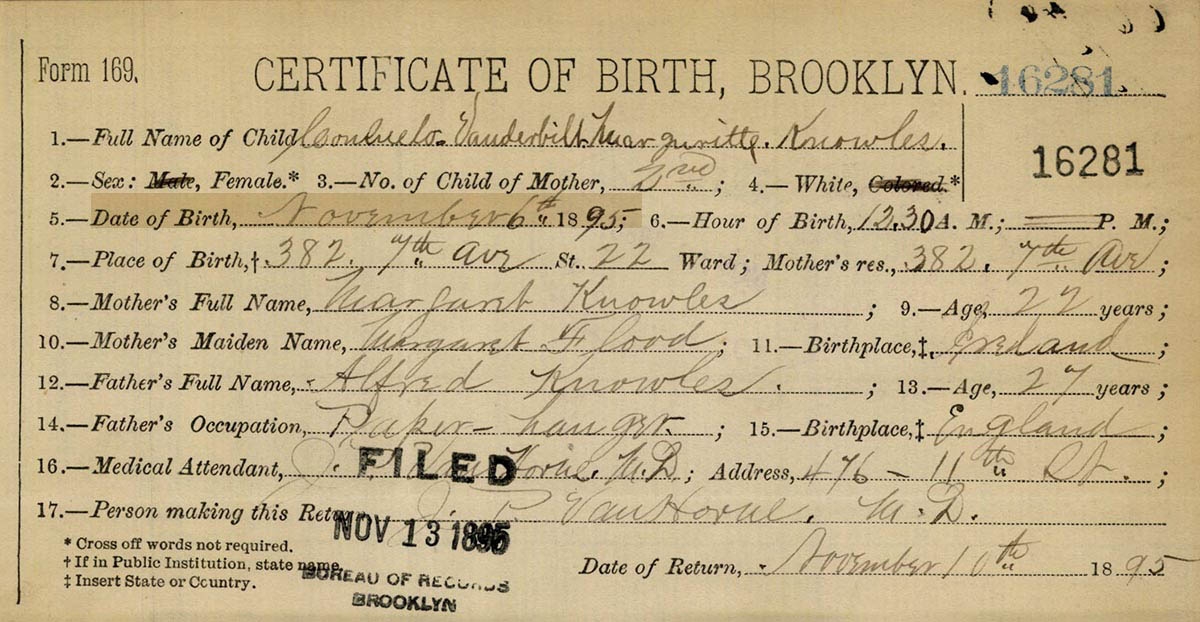 Form 169. CERTIFICATE OF BIRTH, BROOKLYN. 16281.
1.—Full Name of Child Consuelo Vanderbilt Marguritte Knowles. 16281
2.—Sex: Male, Female.* 3.—No. of Child of Mother, 2nd; 4.—White, Colored.*
5.—Date of Birth, November 6th 1895; 6.—Hour of Birth, 12.30 A. M.; P. M.;
7.—Place of Birth,† 382. 7th Ave St. 22 Ward; Mother's res., 382. 7th Ave;
8.—Mother's Full Name, Margaret Knowles; 9.—Age, 22 years;
10.—Mother's Maiden Name, Margaret Flood; 11.—Birthplace,‡ Ireland;
12.—Father's Full Name, Alfred Knowles.; 13.—Age, 27 years;
14.—Father's Occupation, Paper-hanger.; 15.—Birthplace,‡ England;
16.—Medical Attendant, J. P. Van Horne. M.D; Address, 476 - 11th St.;
FILED
17.—Person making this Return J. P. Van Horne. M.D.
NOV 13 1895
* Cross off words not required.
† If in Public Institution, state name.
Date of Return, November 10th 1895
‡ Insert State or Country.
BUREAU OF RECORDS
BROOKLYN